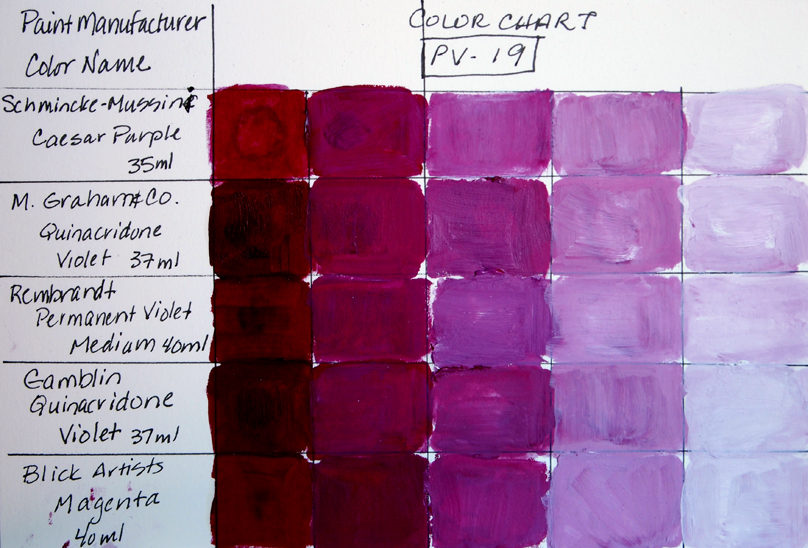 Paint Manufacturer
Color Name
COLOR CHART
PV-19
Schmincke-Mussini
Caesar Purple
35ml
M. Graham & Co.
Quinacridone
Violet 37ml
Rembrandt
Permanent Violet
Medium 40ml
Gamblin
Quinacridone
Violet 37ml
Blick Artists
Magenta
40ml